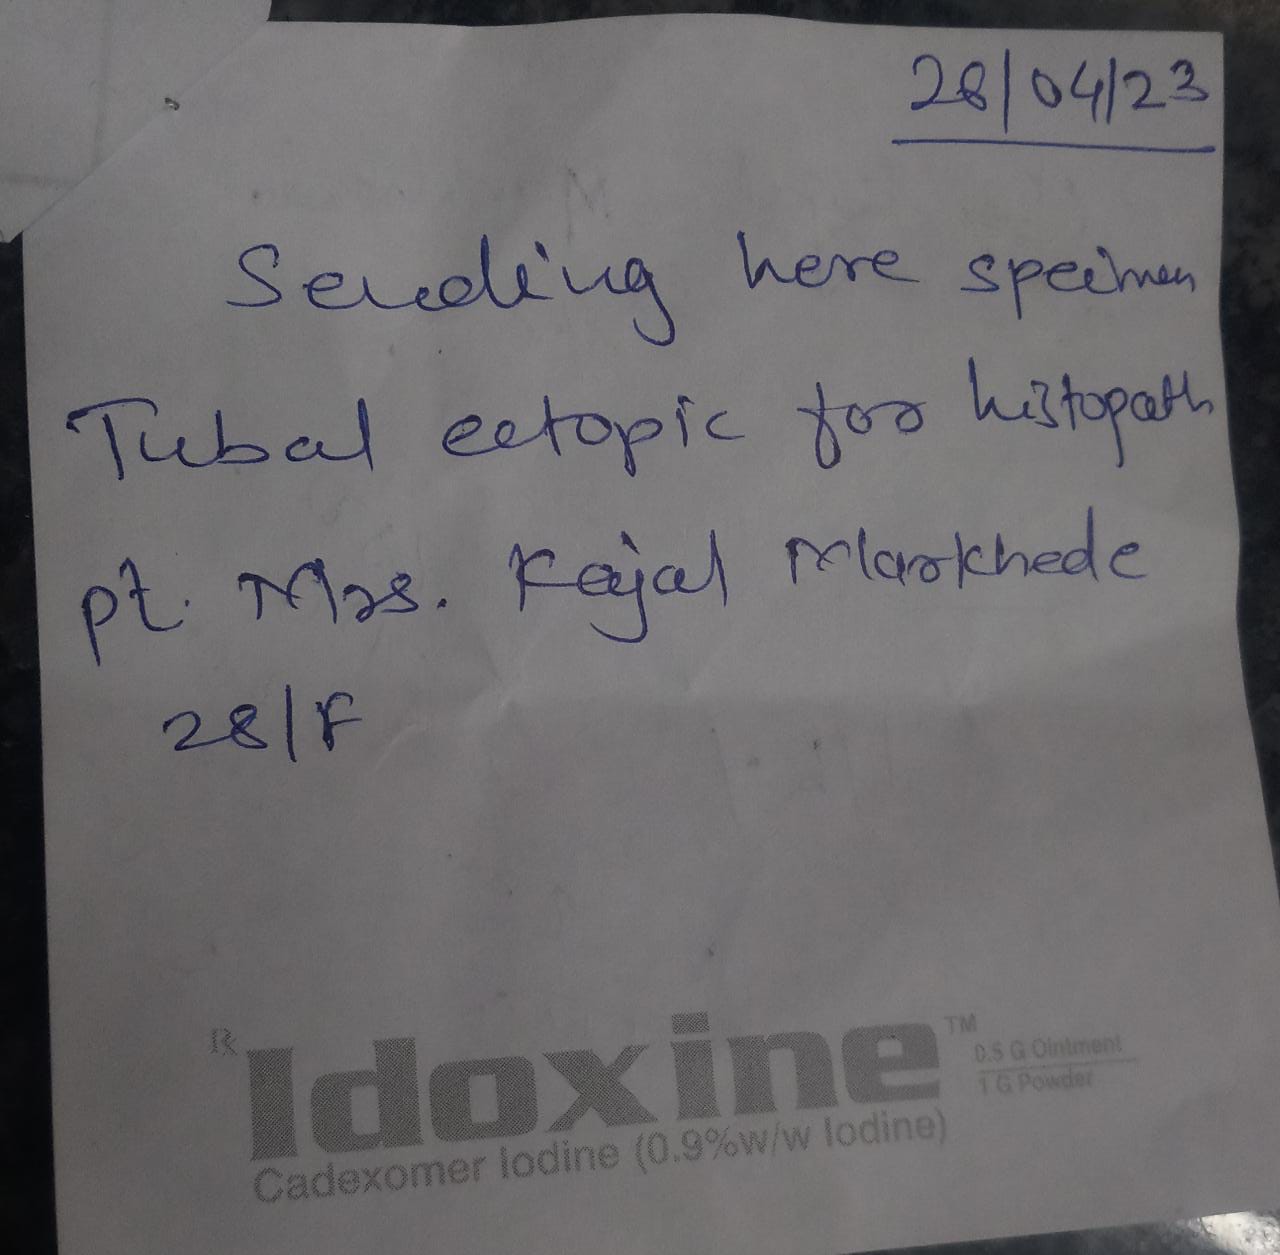 28/04/23
Sending here specimen
Tubal ectopic for histopath
pt. Mrs. Kajal Markhede
28/F
Rx Idoxine™ 0.5 G Ointment
1 G Powder
Cadexomer Iodine (0.9%w/w Iodine)